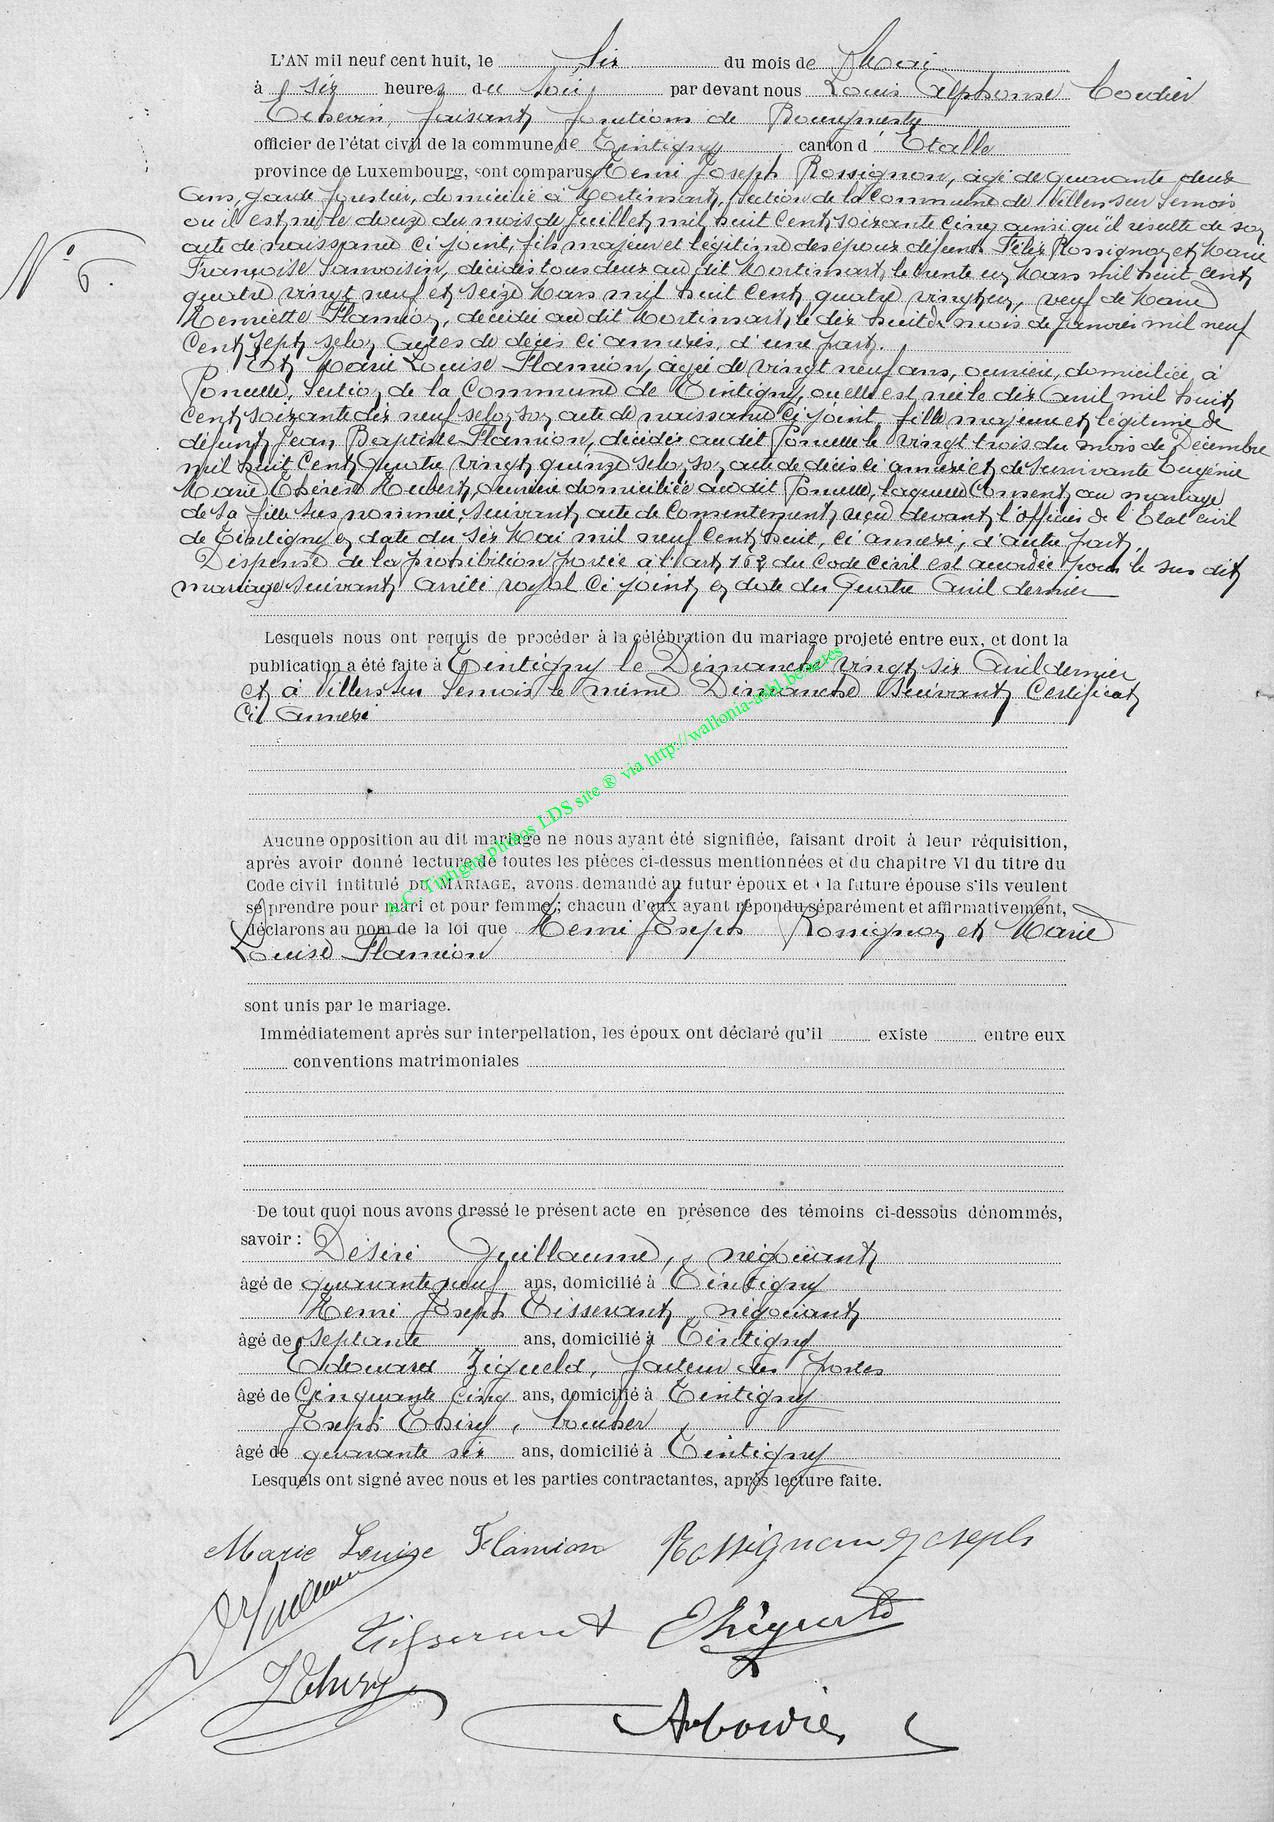 L'AN mil neuf cent huit, le six du mois de Mai
à six heures du soir par devant nous Louis Alphonse Coudier
Echevin, faisant fonctions de Bourgmestre
officier de l'état civil de la commune de Tintigny canton d'Etalle
province de Luxembourg, sont comparus Henri Joseph Rossignon, âgé de quarante deux
ans, garde forestier, domicilié à Mortinsart, section de la Commune de Villers sur Semois
où il est né le douze du mois de Juillet mil huit cent soixante cinq ainsi qu'il résulte de son
acte de naissance ci joint, fils majeur et légitime des époux défunts Félix Rossignon et Marie
Françoise Sanvoisin, décédés tous deux au dit Mortinsart, le trente en Mars mil huit cent
quatre vingt neuf et seize Mars mil huit cent quatre vingt un, veuf de Marie
Henriette Flamion, décédée au dit Mortinsart, le dix huit du mois de Janvier mil neuf
cent sept selon actes de décès ci annexés, d'une part.
Et Marie Louise Flamion, âgée de vingt neuf ans, ouvrière, domiciliée à
Poncelle, section de la Commune de Tintigny, où elle est née le dix Avril mil huit
cent soixante dix neuf selon son acte de naissance ci joint, fille majeure et légitime de
défunt Jean Baptiste Flamion, décédé au dit Poncelle le vingt trois du mois de Décembre
mil huit cent quatre vingt quinze selon son acte de décès ci annexé et de survivante Eugénie
Marie Thérèse Hubert, ouvrière domiciliée au dit Poncelle, laquelle consent au mariage
de sa fille sus nommée, suivant acte de consentement reçu devant l'officier de l'Etat civil
de Tintigny en date du six Mai mil neuf cent huit, ci annexé, d'autre part.
Dispense de la prohibition portée à l'art 162 du Code civil est accordée pour le sus dit
mariage suivant arrêté royal ci joint en date du quatre Avril dernier
Lesquels nous ont requis de procéder à la célébration du mariage projeté entre eux, et dont la
publication a été faite à Tintigny le Dimanche vingt six Avril dernier
et à Villers sur Semois le même Dimanche suivant certificat
ci annexé
Aucune opposition au dit mariage ne nous ayant été signifiée, faisant droit à leur réquisition,
après avoir donné lecture de toutes les pièces ci-dessus mentionnées et du chapitre VI du titre du
Code civil intitulé DU MARIAGE, avons demandé au futur époux et à la future épouse s'ils veulent
se prendre pour mari et pour femme ; chacun d'eux ayant répondu séparément et affirmativement,
déclarons au nom de la loi que Henri Joseph Rossignon et Marie
Louise Flamion
sont unis par le mariage.
Immédiatement après sur interpellation, les époux ont déclaré qu'il existe entre eux
conventions matrimoniales
De tout quoi nous avons dressé le présent acte en présence des témoins ci-dessous dénommés,
savoir : Désiré Guillaume, négociant
âgé de quarante neuf ans, domicilié à Tintigny
Henri Joseph Tisserant, négociant
âgé de septante ans, domicilié à Tintigny
Edouard Zigueld, facteur des postes
âgé de Cinquante cinq ans, domicilié à Tintigny
Joseph Thiry, boucher
âgé de quarante six ans, domicilié à Tintigny
Lesquels ont signé avec nous et les parties contractantes, après lecture faite.
Marie Louise Flamion Rossignon Joseph
D Guillaume
Tisserant
J Thiry
N° 6.
A.C. Tintigny photos LDS site ® via http://wallonia-asbl.be/actes